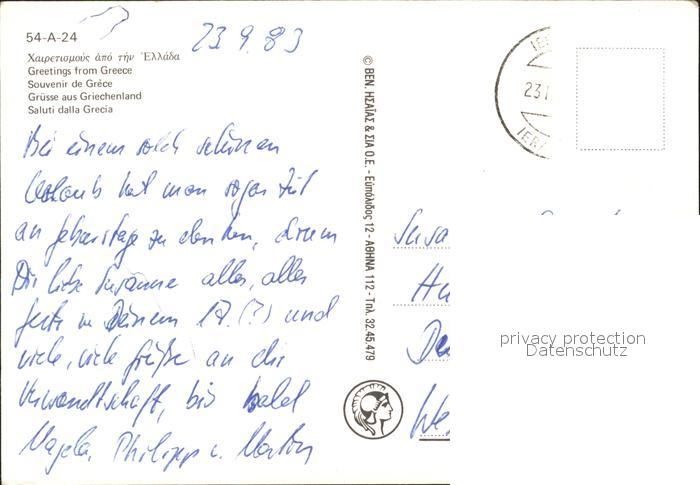 54-A-24
23.9.83
Χαιρετισμούς ἀπό τήν Ἑλλάδα
Greetings from Greece
Souvenir de Grèce
Grüsse aus Griechenland
Saluti dalla Grecia
Bei einem solch schönen
Urlaub hat man sogar Zeit
an Geburtstage zu denken, drum
Dir liebe Susanne alles, alles
Gute in Deinem 17. (?) und
viele, viele Grüße an die
Verwandtschaft, bis bald
Magela, Philipp u. Martin
© ΒΕΝ. ΗΣΑΪΑΣ & ΣΙΑ Ο.Ε. - Εὐπόλιδος 12 - ΑΘΗΝΑ 112 - Τηλ. 32.45.479
IER
23
IER
Susa
Hu
De
We
privacy protection
Datenschutz